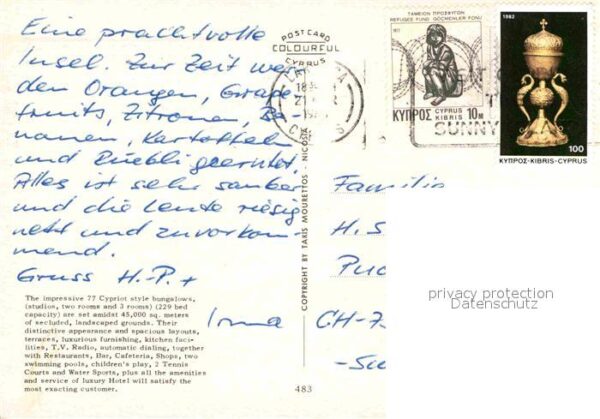 Eine prachtvolle
Insel. Zur Zeit wer-
den Orangen, Grape
fruits, Zitronen, Ba-
nanen, Kartoffeln
und Rüebli geerntet.
Alles ist sehr sauber
und die Leute riesig
nett und zuvorkom-
mend.
Gruss H.-P. +
Irma
The impressive 77 Cypriot style bungalows,
(studios, two rooms and 3 rooms) (229 bed
capacity) are set amidst 45,000 sq. meters
of secluded, landscaped grounds. Their
distinctive appearance and spacious layouts,
terraces, luxurious furnishing, kitchen faci-
lities, T.V. Radio, automatic dialing, together
with Restaurants, Bar, Cafeteria, Shops, two
swimming pools, children's play, 2 Tennis
Courts and Water Sports, plus all the amenities
and service of luxury Hotel will satisfy the
most exacting customer.
POST CARD
COLOURFUL
CYPRUS
COPYRIGHT BY TAKIS MOURETTOS - NICOSIA
483
ΤΑΜΕΙΟΝ ΠΡΟΣΦΥΓΩΝ
REFUGEES FUND GÖÇMENLER FONU
1977
CYPRUS
ΚΥΠΡΟΣ KIBRIS 10M
SUNNY
1982
100
ΚΥΠΡΟΣ-KIBRIS-CYPRUS
Familie
H. S
CH-7
privacy protection
Datenschutz